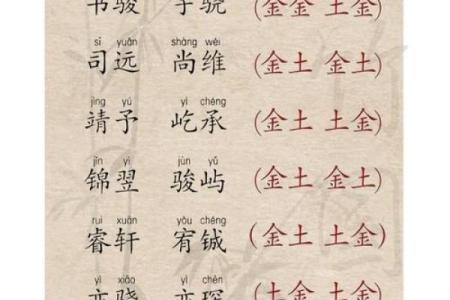 书骏 子骁 (金金 土金)
sī yuǎn shàng wéi
司远 尚维 (金土 土金)
jìng yǔ yì chéng
靖予 屹承 (金土 土金)
jǐn yì jùn yǔ
锦翌 骏屿 (金土 土金)
ruì xuān yòu chéng
睿轩 宥铖 (金土 土金)
yì xiāo yì chēn
亦骁 亦琛 (土金 土金)